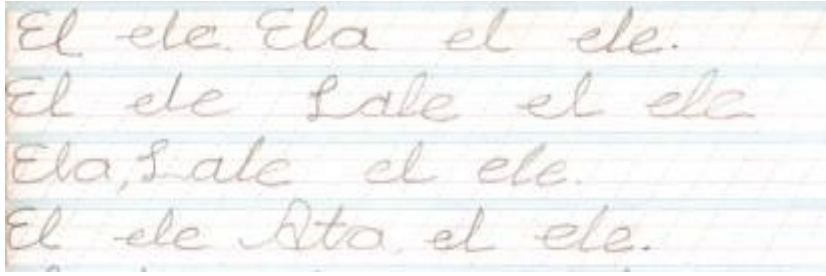 El ele. Ela el ele.
El ele Lale el ele
Ela, Lale el ele.
El ele Ata, el ele.